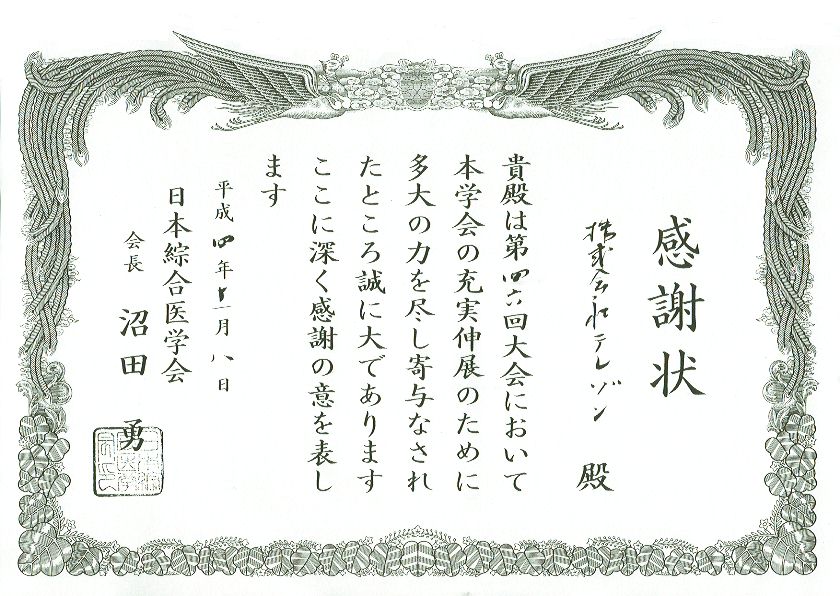 感謝状
株式会社テレゾン 殿
貴殿は第四六回大会において
本学会の充実伸展のために
多大の力を尽し寄与なされ
たところ誠に大であります
ここに深く感謝の意を表し
ます
平成四年十一月八日
日本綜合医学会
会長 沼田 勇